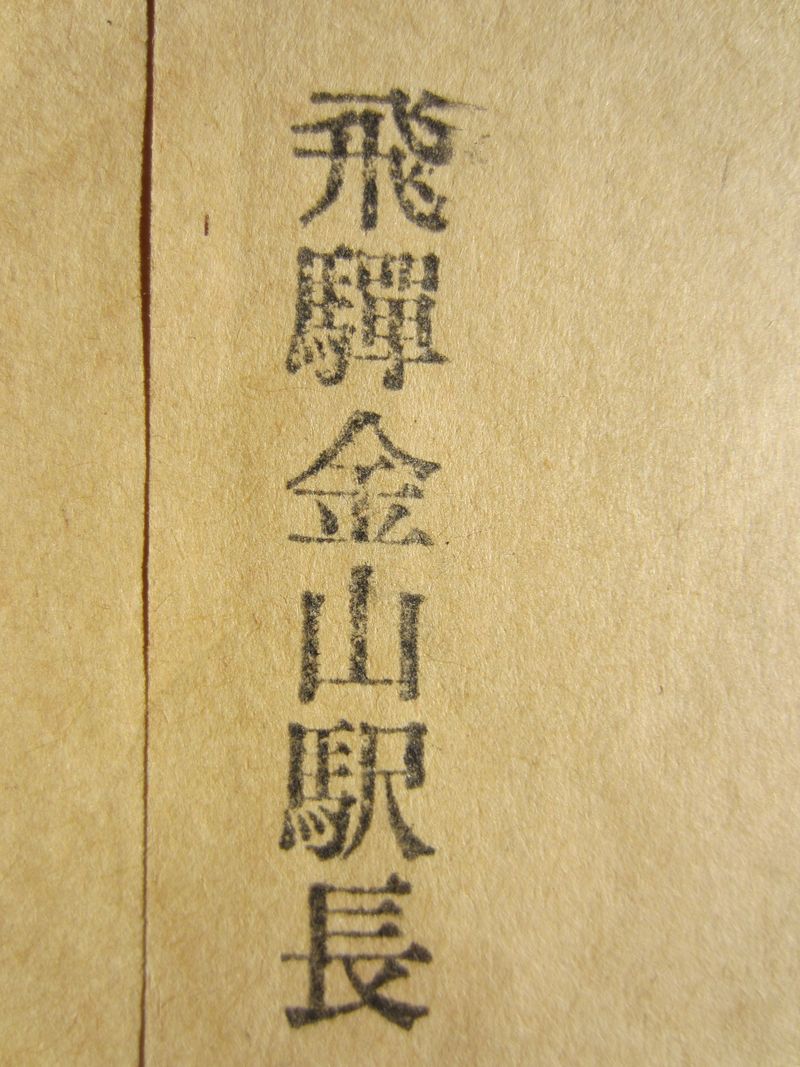 飛驒金山駅長